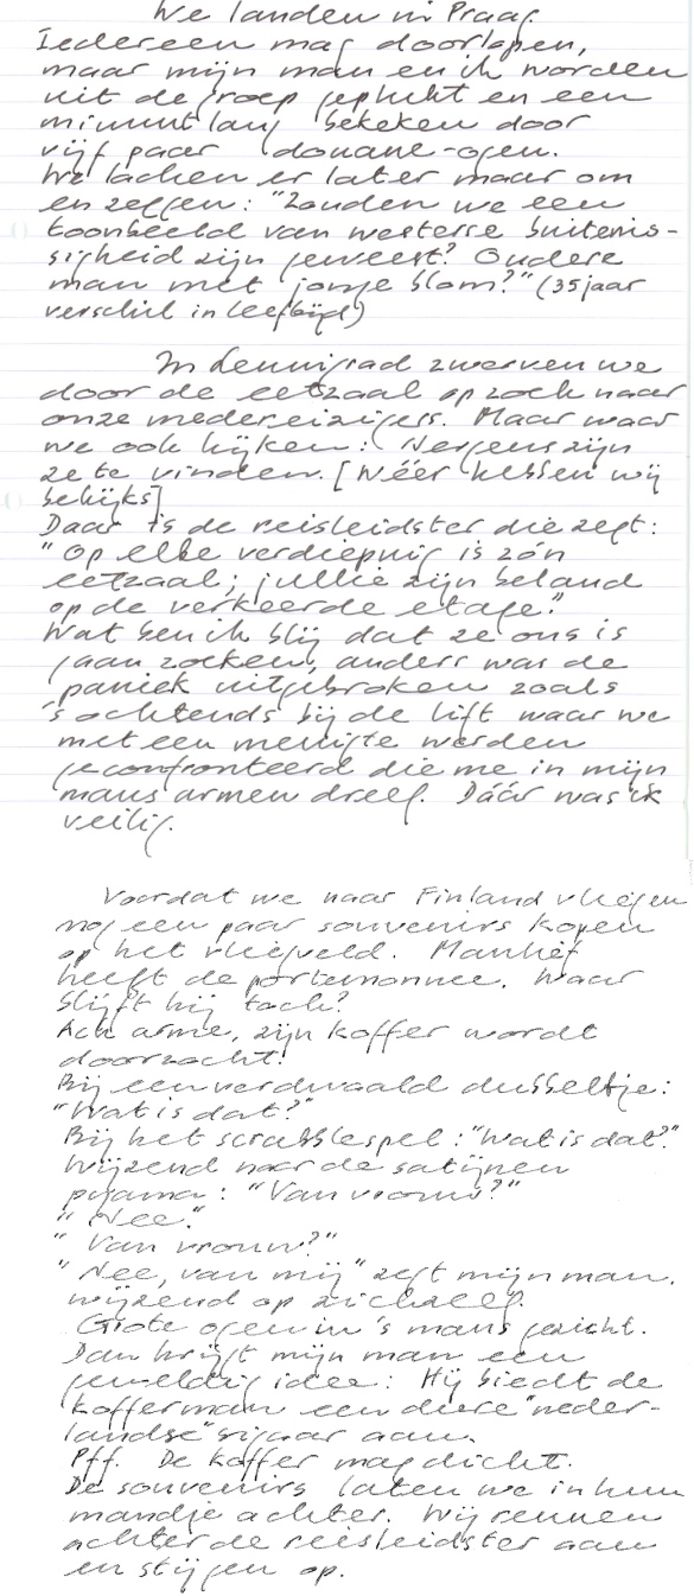 We landen in Praag.
Iedereen mag doorlopen,
maar mijn man en ik worden
uit de groep geplukt en een
minuut lang bekeken door
vijf paar douane-ogen.
We lachen er later maar om
en zeggen: "Zouden we een
toonbeeld van westerse buitenis-
sigheid zijn geweest? Oudere
man met jonge blom?" (35 jaar
verschil in leeftijd)
In Leningrad zwerven we
door de eetzaal op zoek naar
onze medereizigers. Maar waar
we ook kijken: Nergens zijn
ze te vinden. [Wéér hebben wij
bekijks]
Daar is de reisleidster die zegt:
"Op elke verdieping is zó'n
eetzaal; jullie zijn beland
op de verkeerde etage."
Wat ben ik blij dat ze ons is
gaan zoeken, anders was de
paniek uitgebroken zoals
's ochtends bij de lift waar we
met een menigte werden
geconfronteerd die me in mijn
mans armen dreef. Dáár was ik
veilig.
Voordat we naar Finland vliegen
nog een paar souvenirs kopen
op het vliegveld. Manlief
heeft de portemonnee. Waar
blijft hij toch?
Ach arme, zijn koffer wordt
doorzocht!
Bij een verdwaald dubbeltje:
"Wat is dat?"
Bij het scrabblespel: "Wat is dat?"
Wijzend naar de satijnen
pyjama: "Van vrouw?"
"Nee."
"Van vrouw?"
"Nee, van mij" zegt mijn man,
wijzend op zichzelf.
Grote ogen in 's mans gezicht.
Dan krijgt mijn man een
geweldig idee: Hij biedt de
kofferman een dure "neder-
landse" sigaar aan.
Pff. De koffer mag dicht.
De souvenirs laten we in hun
mandje achter. Wij rennen
achter de reisleidster aan
en stijgen op.